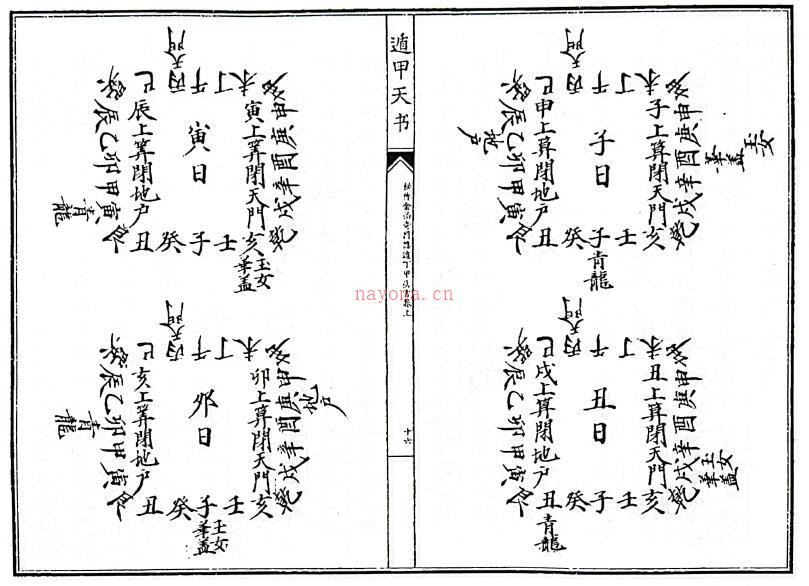 天門
巳丙午丁未
申庚酉辛戌
玉女
華蓋
子上算閉天門
子日
申上算閉地户
辰乙卯甲寅
地户
丑癸子壬亥
青龍
天門
巳丙午丁未
申庚酉辛戌
玉女
華蓋
丑上算閉天門
丑日
戌上算閉地户
辰乙卯甲寅
丑癸子壬亥
青龍
遁甲天书
十六
天門
巳丙午丁未
申庚酉辛戌
寅上算閉天門
寅日
辰上算閉地户
辰乙卯甲寅
青龍
丑癸子壬亥
玉女
華蓋
天門
巳丙午丁未
申庚酉辛戌
地户
卯上算閉天門
卯日
亥上算閉地户
辰乙卯甲寅
青龍
丑癸子壬亥
玉女
華蓋
nayona.cn